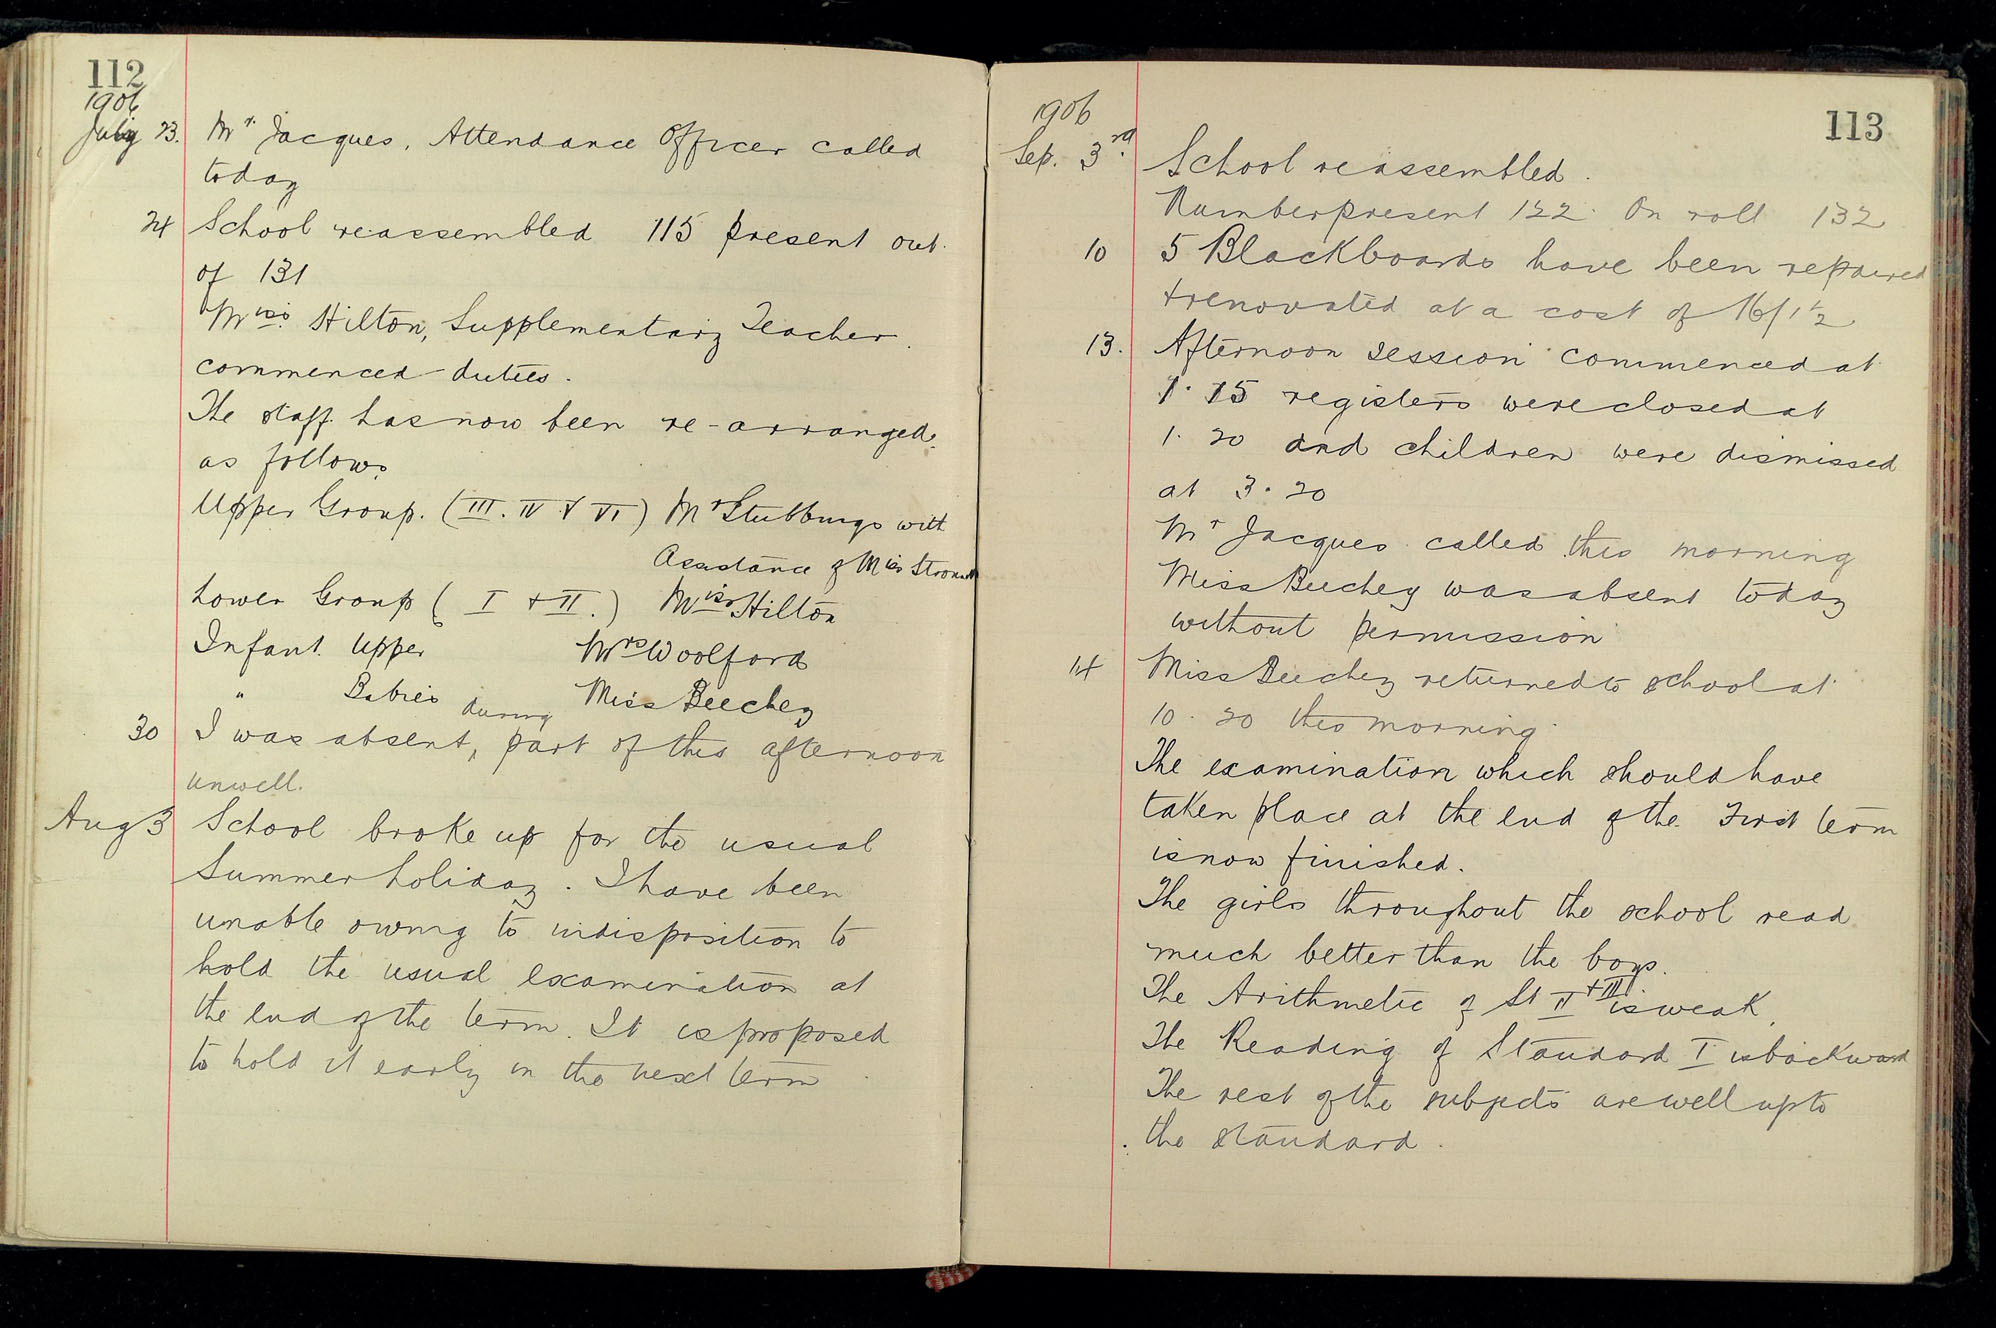 112
1906
July 23. Mr. Jacques, Attendance Officer called
today
24 School reassembled 115 present out
of 131
Miss Hilton, Supplementary Teacher
commenced duties.
The staff has now been re-arranged
as follows
Upper Group. (III. IV & VI) Mr Stubbings with
Assistance of Miss
Lower Group ( I + II.) Miss Hilton
Infant Upper Mrs Woolford
" Babies Miss Beechey
during
30 I was absent, part of this afternoon
unwell.
Aug 3 School broke up for the usual
Summer holiday. I have been
unable owing to indisposition to
hold the usual examination at
the end of the term. It is proposed
to hold it early in the next term
113
1906
Sep. 3rd. School reassembled.
Number present 122. On roll 132
10 5 Blackboards have been repaired
+ renovated at a cost of 16/1½
13. Afternoon session commenced at
1.15 registers were closed at
1.20 and children were dismissed
at 3.20
Mr Jacques called this morning
Miss Beechey was absent today
without permission
14 Miss Beechey returned to school at
10.20 this morning.
The examination which should have
taken place at the end of the First term
is now finished.
The girls throughout the school read
much better than the boys.
The Arithmetic of St II + III is weak.
The Reading of Standard I is backward
The rest of the subjects are well up to
the standard.